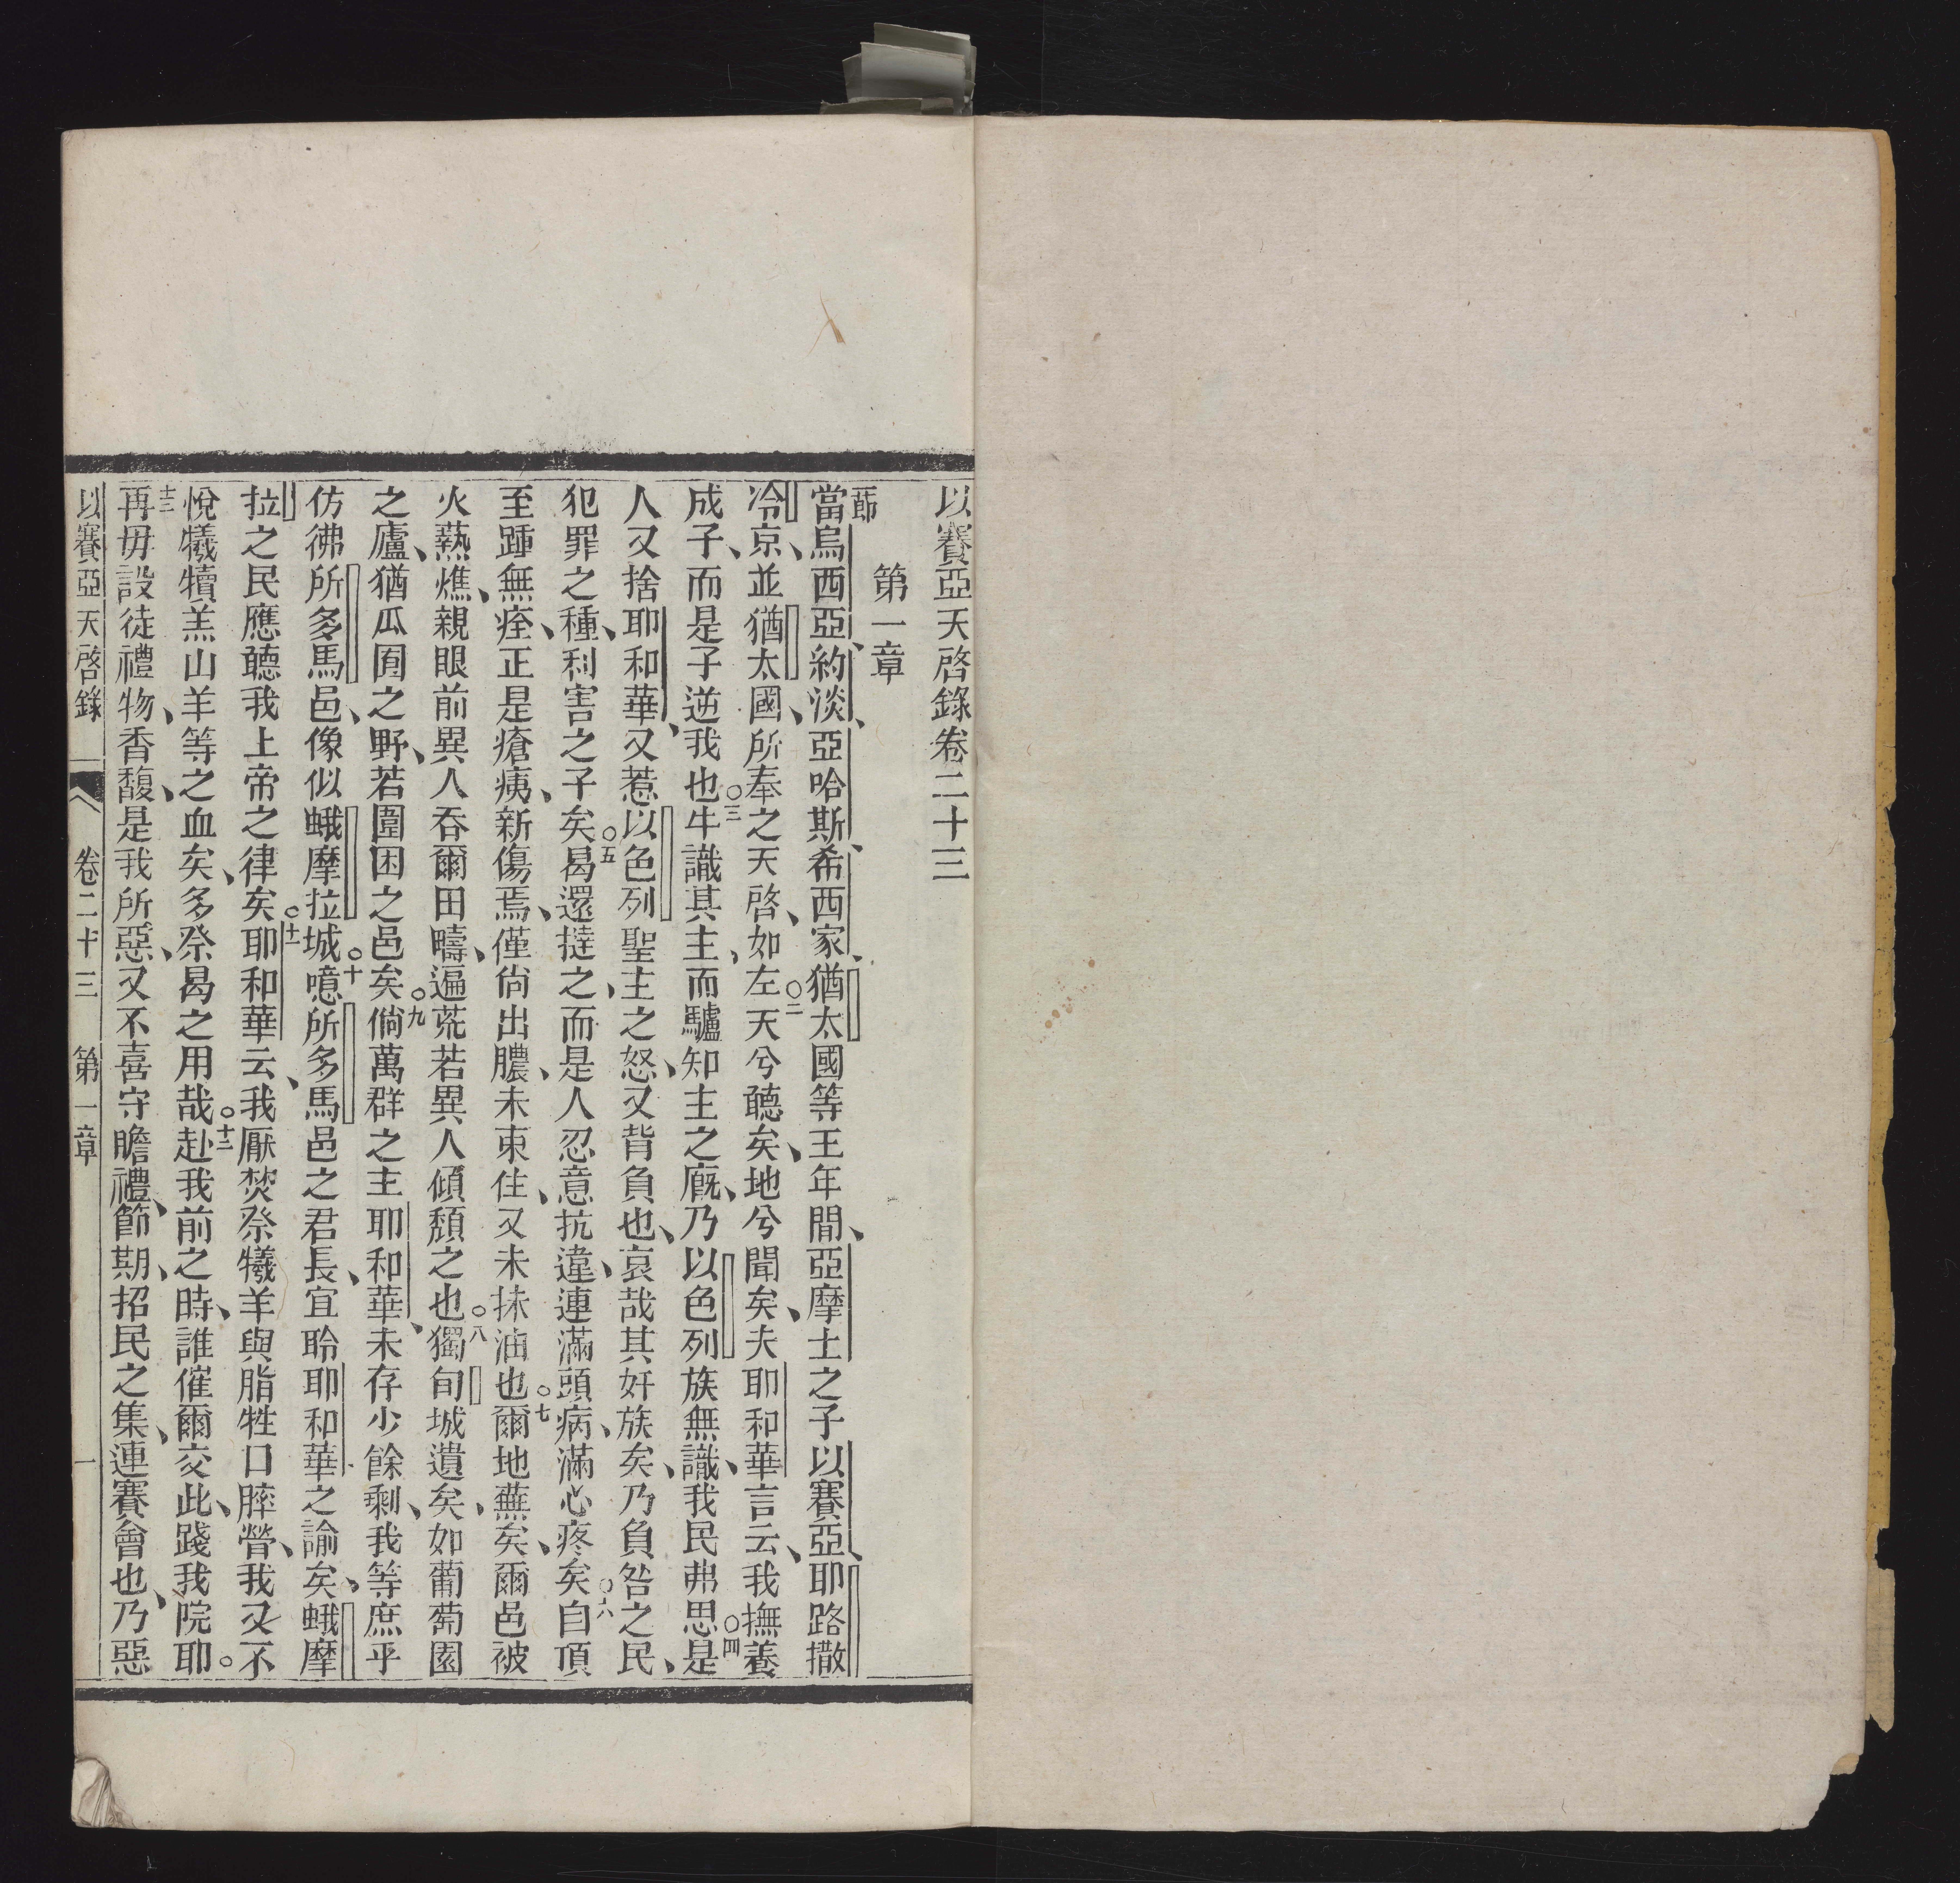 以賽亞天啓錄卷二十三
第一章
節
當烏西亞、約淡、亞哈斯、希西家、猶太國等王年間、亞摩士之子以賽亞、耶路撒
冷京、並猶太國、所奉之天啓、如左○二天兮聽矣、地兮聞矣、夫耶和華言云、我撫養
成子、而是子逆我也○三牛識其主、而驢知主之廐、乃以色列族無識、我民弗思○四是
人又捨耶和華、又惹以色列聖主之怒、又背負也、哀哉其奸族矣、乃負咎之民、
犯罪之種、利害之子矣○五曷還撻之、而是人忍意抗違、連滿頭病、滿心疼矣○六自頂
至踵無痊、正是瘡痍、新傷焉、僅尙出膿、未束住、又未抹油也○七爾地蕪矣、爾邑被
火爇燋、親眼前異人吞爾田疇、遍荒若異人傾頹之也○八獨旬城遺矣、如葡萄園
之廬、猶瓜囿之野、若圍困之邑矣○九倘萬群之主耶和華、未存少餘剩、我等庶乎
彷彿所多馬邑、像似蛾摩拉城○十噫所多馬邑之君長、宜聆耶和華之諭矣、蛾摩
拉之民應聽我上帝之律矣○十一耶和華云、我厭焚祭犧羊與脂牲口膵膋、我又不
悅犧犢羔山羊等之血矣、多祭曷之用哉○十二赴我前之時、誰催爾交此、踐我院耶○
十三再毋設徒禮物、香馥、是我所惡、又不喜守瞻禮、節期、招民之集、連賽會也、乃惡
以賽亞天啓錄 卷二十三 第一章 一